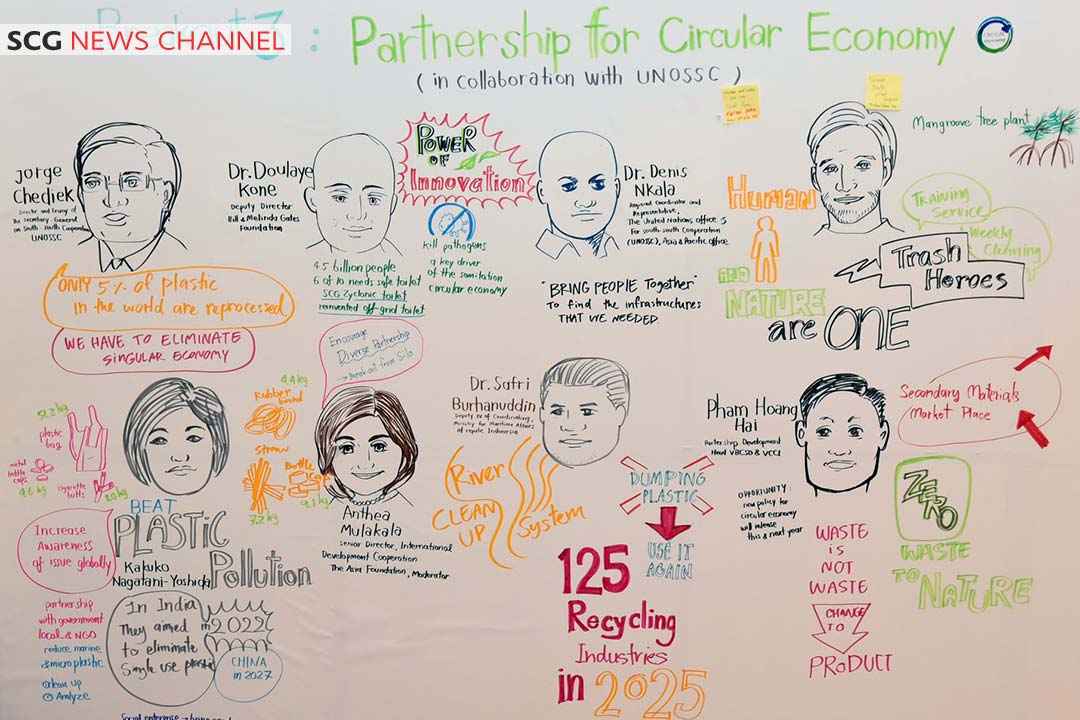 SCG NEWS CHANNEL
3 : Partnership for Circular Economy
(in collaboration with UNOSSC)
Jorge
Chediek
Director and Envoy of
The Secretary-General
on South-south Cooperation
UNOSSC
ONLY 5% of plastic
in the world are reprocessed
WE HAVE TO ELIMINATE
SINGULAR ECONOMY
Dr. Doulaye
Kone
Deputy Director
Bill & Melinda Gates
Foundation
POWER
OF
Innovation
kill pathogens
key driver
of the sanitation
circular economy
4.5 billion people
6 of 10 needs safe toilet
SCG Zyclonic toilet
reinvented off-grid toilet
Dr. Denis
Nkala
Regional Coordinator and
Representative,
The United Nations Office
For south-south Cooperation
(UNOSSC), Asia & Pacific Office
"BRING PEOPLE Together"
To find the infrastructures
THAT WE NEEDED.
Human
AND
NATURE
are ONE
Mangroove tree plant
Training
Service
Weekly
Cleaning
Trash
Heroes
51.2 kg
plastic
bag
metal
bottle
caps
4.6 kg
cigarette
butts
4.4 kg
Rubber
band
Straw
7.2 kg
Bottle
9.1 kg
BEAT
PLASTIC
Pollution
Kakuko
Nagatani-Yoshida
Increase
Awareness
of issue globally
partnership
with government
local & NGO
reduce marine
& micro plastic
clean up
Analyze
In India
They aimed
to eliminate
Single use plastic
in 2022
CHINA
in 2027
Social enterprise
Encourage
Diverse Partnership
→ Breakout from Silo
Anthea
Mulakala
Senior Director, International
Development Cooperation
The Asia Foundation, Moderator
Dr. Safri
Burhanuddin
Deputy IV of Coordinating,
Ministry for Maritime Affairs
Indonesia
River
CLEAN
UP
System
DUMPING
PLASTIC
USE IT
AGAIN
125
Recycling
Industries
in 2025
Pham Hoang
Hai
Partership Development
Head VBCSD & VCCI
OPPORTUNITY:
new policy for
circular economy
will release
this & next year
WASTE
is
NOT
WASTE
CHANGE
TO
PRODUCT
Secondary Materials
Market Place
ZERO
WASTE
TO NATURE